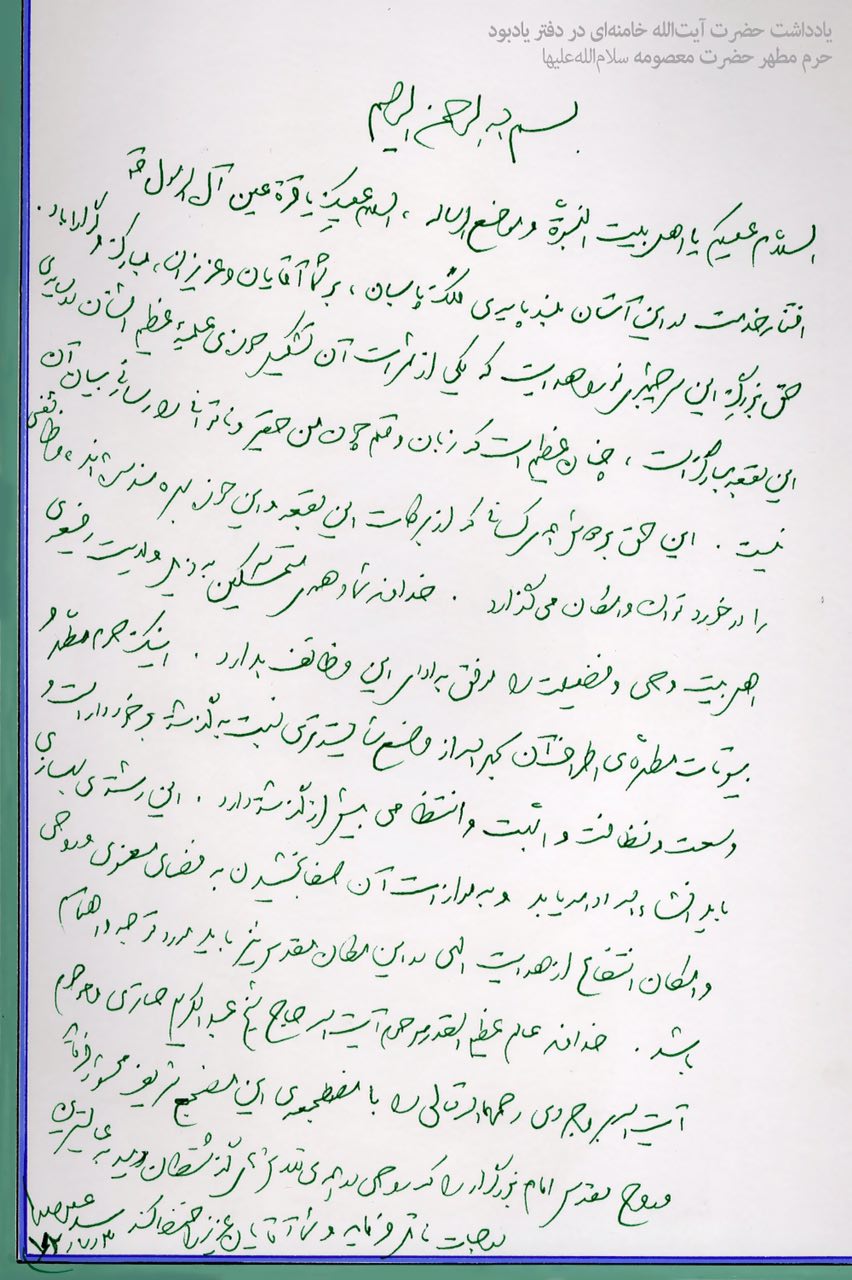 یادداشت حضرت آیت‌الله خامنه‌ای در دفتر یادبود
حرم مطهر حضرت معصومه سلام‌الله‌علیها
بسم الله الرحمن الرحیم
السلام علیکم یا اهل بیت النبوة و موضع الرسالة ، السلام علیک یا قرة عین آل الرسول
افتخار خدمت در این آستان بلند پایه‌ی ملک پاسبان ، بر شما آقایان و عزیزان ، مبارک و گوارا باد .
حق بزرگ این سرچشمه‌ی نور و هدایت که یکی از ثمرات آن تشکیل حوزه‌ی علمیه‌ی عظیم الشأن در
این بقعه‌ی مبارکه است ، چنان عظیم است که زبان و قلم چون من حقیر و ناتوانی را یارای بیان آن
نیست . این حق بر دوش همه‌ی کسانی که از برکات این بقعه و این حوزه بهره‌مند شده‌اند ، وظائفی
را در خورد توان و امکان می‌گذارد . خداوند شما و همه‌ی متمسکین به ذیل ولایت
اهل بیت وحی و فضیلت را موفق به ادای این وظائف بدارد . اینک حرم مطهر و
بیوتات مطهره‌ی اطراف آن بحمدالله از وضع شایسته‌تری نسبت به گذشته برخوردار است و
وسعت و نظافت و ابهت و انتظامی بیش از گذشته دارد . این رشته‌ی بهسازی
باید انشاءالله ادامه یابد و به موازات آن صفا بخشیدن به فضای معنوی و روحی
و امکان انتفاع از هدایت الهی در این مکان مقدس نیز باید مورد توجه و اهتمام
باشد . خداوند عالم عظیم القدر مرحوم آیت الله حاج شیخ عبدالکریم حائری و مرحوم
آیت الله بروجردی رحمهما الله تعالی را با مضطجعه‌ی این مضجع شریف محشور فرماید
و روح مقدس امام بزرگوار را که روحی در همه‌ی
درجات نائل فرماید و شما آقایان عزیز را حفظ کند